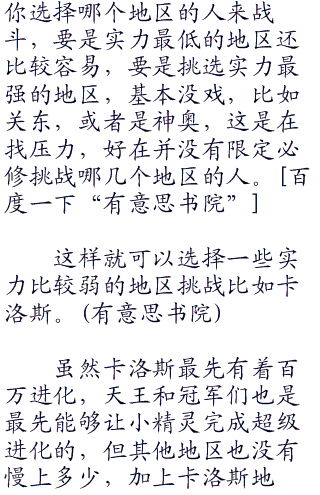 你选择哪个地区的人来战
斗，要是实力最低的地区还
比较容易，要是挑选实力最
强的地区，基本没戏，比如
关东，或者是神奥，这是在
找压力，好在并没有限定必
修挑战哪几个地区的人。[百
度一下“有意思书院”]
这样就可以选择一些实
力比较弱的地区挑战比如卡
洛斯。(有意思书院)
虽然卡洛斯最先有着百
万进化，天王和冠军们也是
最先能够让小精灵完成超级
进化的，但其他地区也没有
慢上多少，加上卡洛斯地